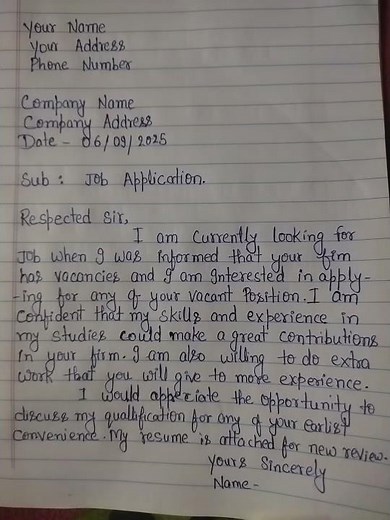 Your Name
Your Address
Phone Number
Company Name
Company Address
Date - 06/09/2025
Sub : Job Application.
Respected Sir,
I am currently looking for
Job when I was informed that your firm
has vacancies and I am Interested in apply-
-ing for any of your vacant Position. I am
Confident that my skills and experience in
my studies could make a great contributions
in your firm. I am also willing to do extra
work that you will give to more experience.
I would appreciate the opportunity to
discuss my quallification for any of your earlist
convenience. My resume is attached for new review.
Yours Sincerely
Name -